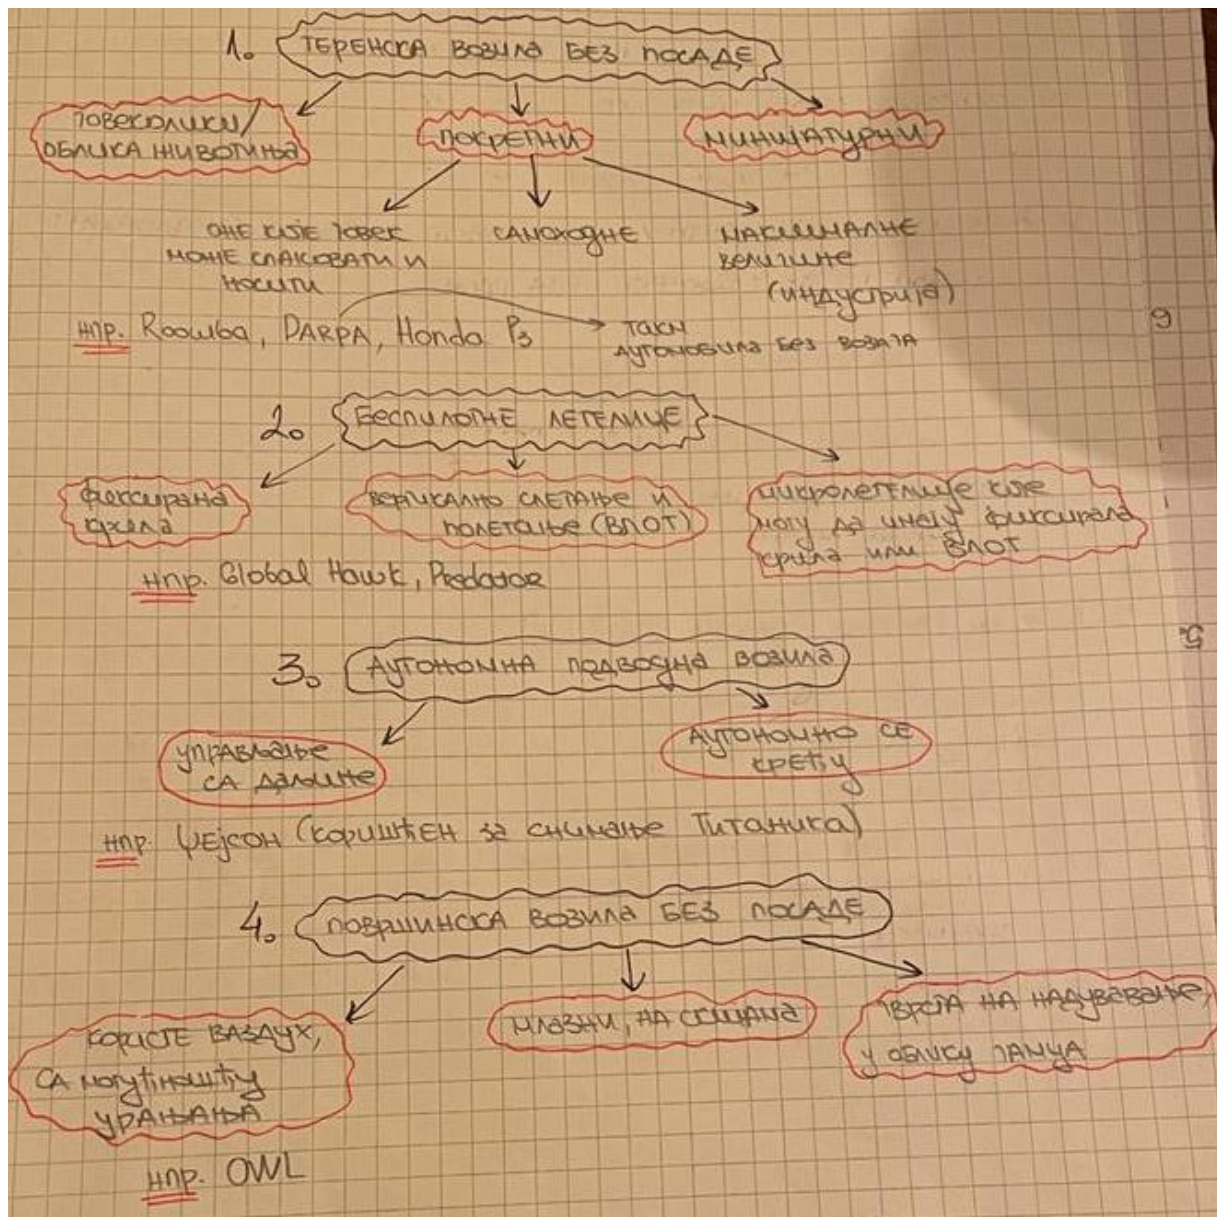 1. ТЕРЕНСКА ВОЗИЛА БЕЗ ПОСАДЕ
ЧОВЕКОЛИКИ/
ОБЛИКА ЖИВОТИЊА
ПОКРЕТНИ
МИНИЈАТУРНИ
ОНЕ КОЈЕ ЧОВЕК
МОЖЕ СПАКОВАТИ И
НОСИТИ
САМОХОДНЕ
МАКСИМАЛНЕ
ВЕЛИЧИНЕ
(ИНДУСТРИЈА)
нпр. Roomba, DARPA, Honda P3
ТАКМ
АУТОМОБИЛА БЕЗ ВОЗАЧА
6
2. БЕСПИЛОТНЕ ЛЕТЕЛИЦЕ
фиксирана
крила
ВЕРТИКАЛНО СЛЕТАЊЕ И
ПОЛЕТАЊЕ (ВЛОТ)
микролетелице које
могу да имају фиксирана
крила или ВЛОТ
нпр. Global Hawk, Predator
5.
3. АУТОНОМНА ПОДВОДНА ВОЗИЛА
УПРАВЉАЊЕ
СА ДАЉИНЕ
АУТОНОМНО СЕ
КРЕЋУ
нпр. ЏЕЈСОН (КОРИШЋЕН ЗА СНИМАЊЕ ТИТАНИКА)
4. ПОВРШИНСКА ВОЗИЛА БЕЗ ПОСАДЕ
КОРИСТЕ ВАЗДУХ,
СА МОГУЋНОШЋУ
УРАЊАЊА
МЛАЗНИ, НА СКИЈАМА
ЧВРСТА НА НАДУВАВАЊЕ,
У ОБЛИКУ ЧАМЦА
нпр. OWL